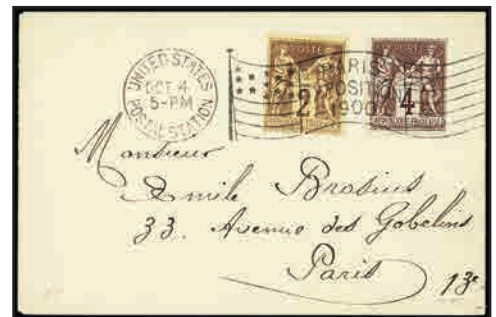 UNITED STATES
OCT 4
5-PM
POSTAL STATION
PARIS
EXPOSITION
1900
POSTE
2
4
Monsieur
Emile Brosius
33. Avenue des Gobelins
Paris 13e